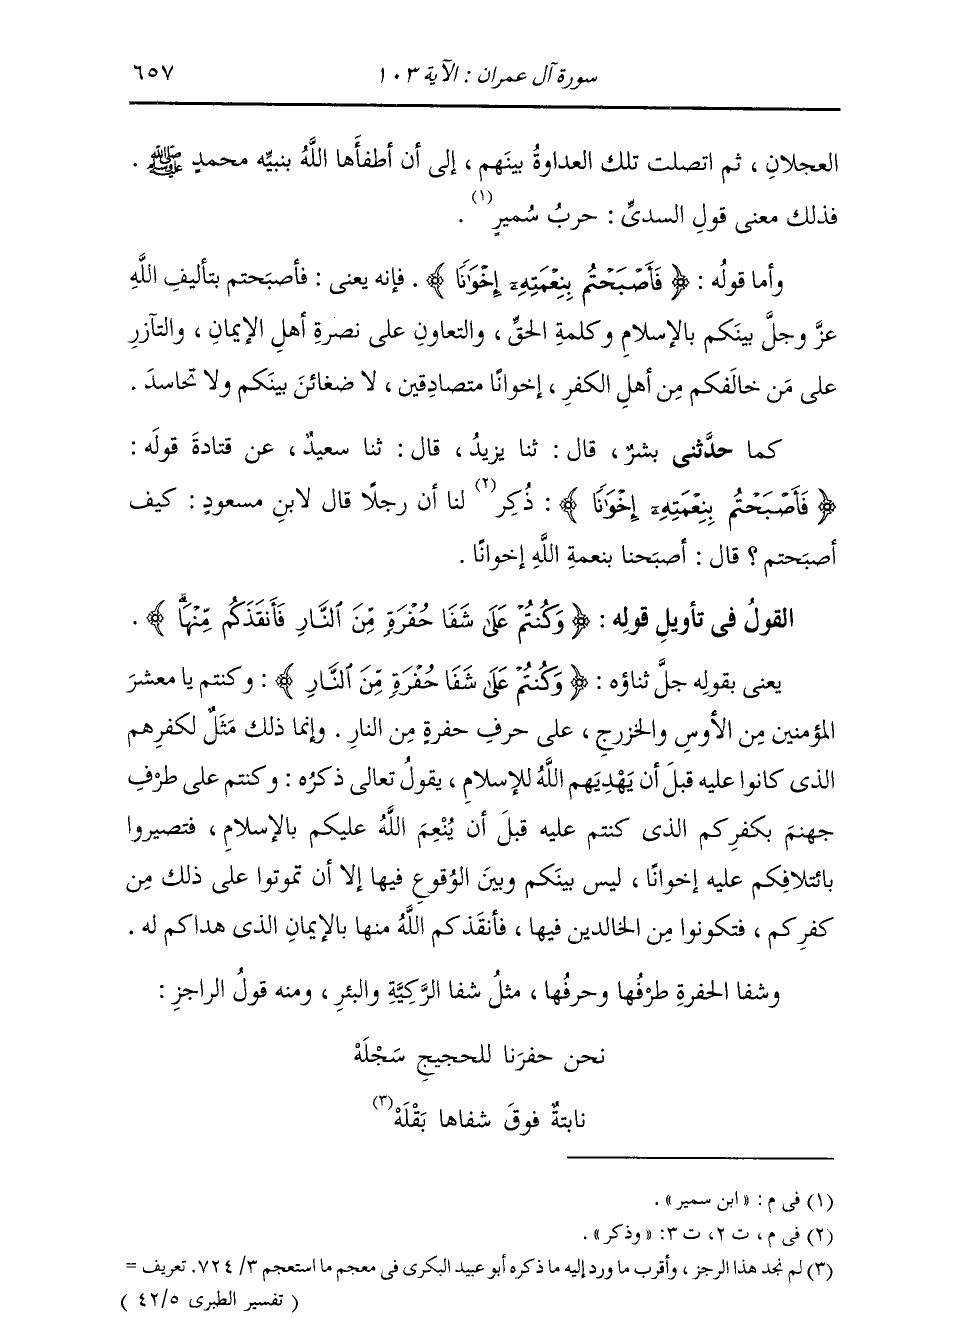 سورة آل عمران : الآية ١٠٣ ٦٥٧
العجلانِ ، ثم اتصلت تلك العداوةُ بينَهم ، إلى أن أطفأَها اللَّهُ بنبيِّه محمدٍ ﷺ .
فذلك معنى قولِ السدىِّ : حربُ سُميرٍ(١) .
وأما قولُه : ﴿ فَأَصْبَحْتُم بِنِعْمَتِهِۦٓ إِخْوَٰنًا ﴾ . فإنه يعنى : فأصبَحتم بتأليفِ اللَّهِ
عزَّ وجلَّ بينَكم بالإسلامِ وكلمةِ الحقِّ ، والتعاونِ على نصرةِ أهلِ الإيمانِ ، والتآزرِ
على مَن خالَفكم مِن أهلِ الكفرِ ، إخوانًا متصادِقين ، لا ضغائنَ بينَكم ولا تحاسدَ .
كما حدَّثنى بشرٌ ، قال : ثنا يزيدُ ، قال : ثنا سعيدٌ ، عن قتادةَ قولَه :
﴿ فَأَصْبَحْتُم بِنِعْمَتِهِۦٓ إِخْوَٰنًا ﴾ : ذُكِر(٢) لنا أن رجلًا قال لابنِ مسعودٍ : كيف
أصبَحتم ؟ قال : أصبَحنا بنعمةِ اللَّهِ إخوانًا .
القولُ فى تأويلِ قولِه : ﴿ وَكُنتُمْ عَلَىٰ شَفَا حُفْرَةٍ مِّنَ ٱلنَّارِ فَأَنقَذَكُم مِّنْهَا ۗ ﴾ .
يعنى بقولِه جلَّ ثناؤه : ﴿ وَكُنتُمْ عَلَىٰ شَفَا حُفْرَةٍ مِّنَ ٱلنَّارِ ﴾ : وكنتم يا معشرَ
المؤمنين مِن الأوسِ والخزرجِ ، على حرفِ حفرةٍ مِن النارِ . وإنما ذلك مَثَلٌ لكفرِهم
الذى كانوا عليه قبلَ أن يَهْدِيَهم اللَّهُ للإسلامِ ، يقولُ تعالى ذكرُه : وكنتم على طرْفِ
جهنمَ بكفرِكم الذى كنتم عليه قبلَ أن يُنْعِمَ اللَّهُ عليكم بالإسلامِ ، فتصيروا
بائتلافِكم عليه إخوانًا ، ليس بينَكم وبينَ الوُقوعِ فيها إلا أن تموتوا على ذلك مِن
كفرِكم ، فتكونوا مِن الخالدين فيها ، فأنقَذكم اللَّهُ منها بالإيمانِ الذى هداكم له .
وشفا الحفرةِ طرْفُها وحرفُها ، مثلُ شفا الرَّكِيَّةِ والبئرِ ، ومنه قولُ الراجزِ :
نحن حفرَنا للحجيجِ سَجْلَهْ
نابتةٌ فوقَ شفاها بَقْلَهْ(٣)
(١) فى م : « ابن سمير » .
(٢) فى م ، ت ٢ ، ت ٣ : « وذكر » .
(٣) لم نجد هذا الرجز ، وأقرب ما ورد إليه ما ذكره أبو عبيد البكرى فى معجم ما استعجم ٣/ ٧٢٤. تعريف =
( تفسير الطبرى ٤٢/٥ )